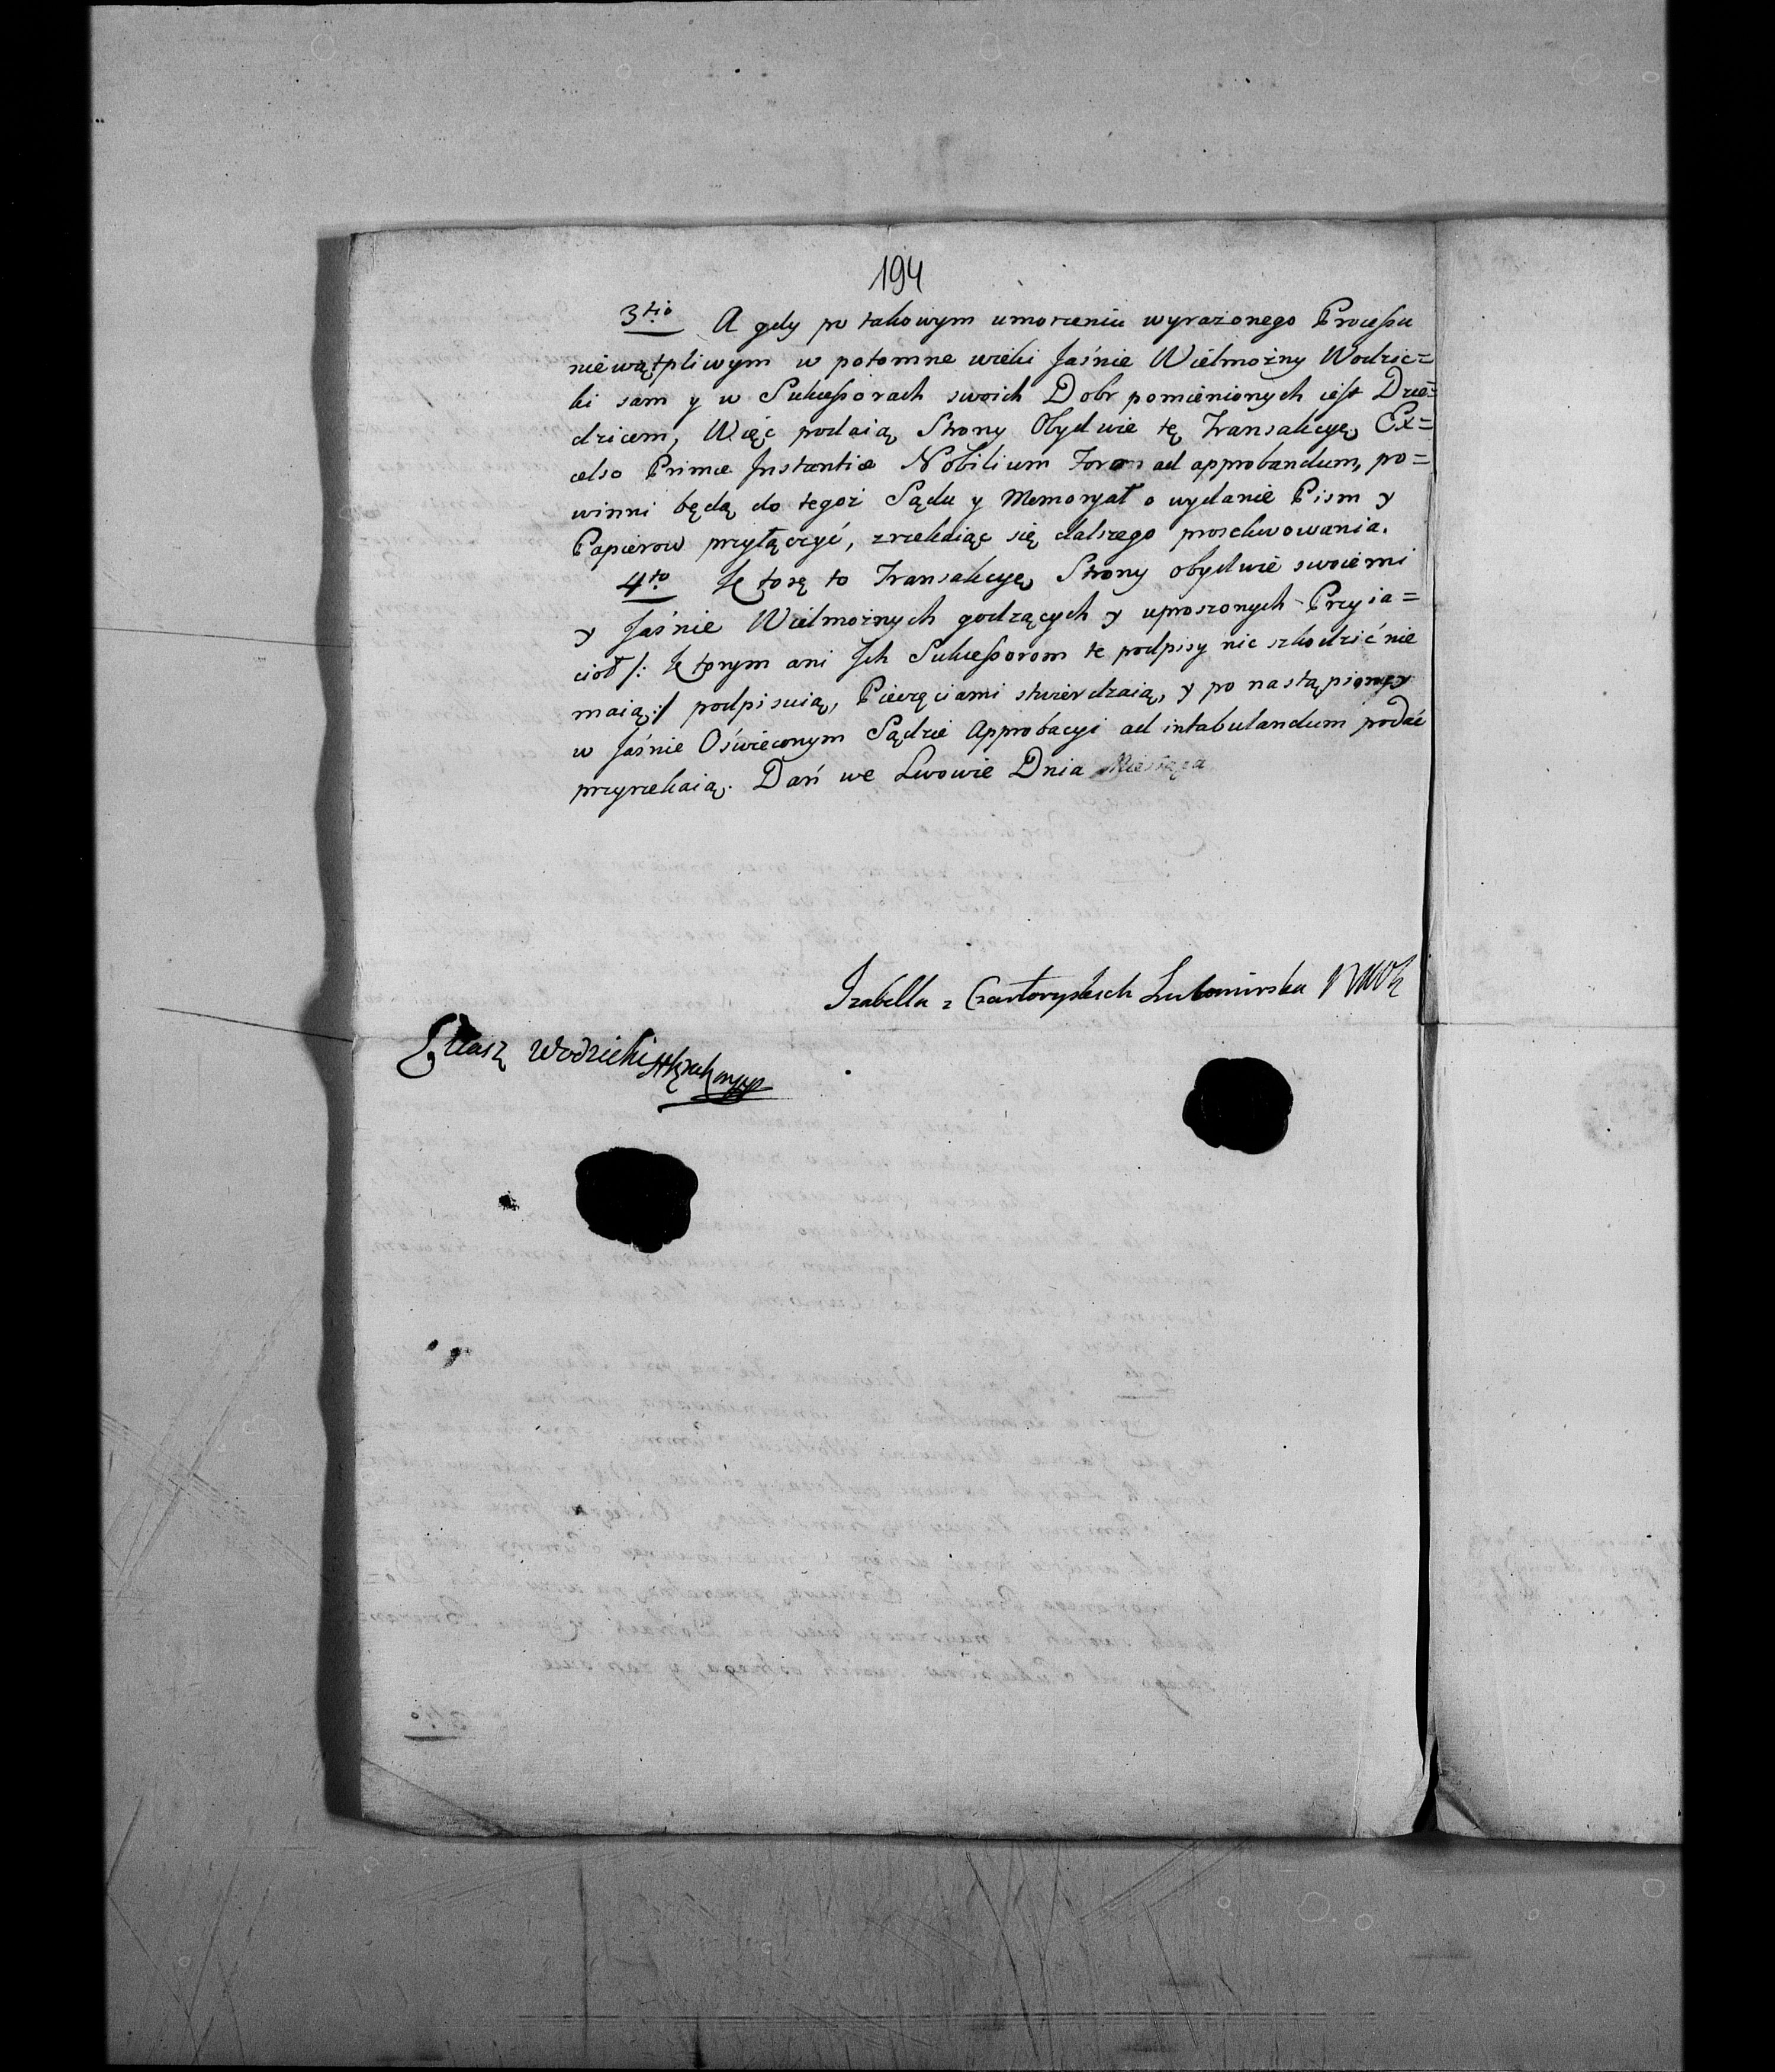 194
3tio A gdy po takowym umorzeniu wyrażonego Processu
niewątpliwym w potomne wieki Jaśnie Wielmożny Wodzic=
ki sam y w Sukcessorach swoich Dobr pomienionych iest Dzie=
dzicem, Więc podaią Strony Obydwie tę Transakcyę Ex=
celso Primæ Instantiæ Nobilium Foro ad approbandum, po=
winni będą do tegoż Sądu y Memoryał o wydanie Pism y
Papierow przyłączyć, zrzekaiąc się dalszego prosekwowania.
4to Ktorę to Transakcyę Strony obydwie swoiemi
y Jaśnie Wielmożnych godzących y uproszonych Przyia=
cioł /: Ktorym ani Ich Sukcessorom te podpisy nic szkodzić nie
maią :/ podpisuią, Pieczęciami stwierdzaią, y po nastąpioney
w Jaśnie Oświeconym Sądzie Approbacyi ad intabulandum podać
przyrzekaią. Dań we Lwowie Dnia Miesiąca
Izabella z Czartoryskich Lubomirska
Eliasz Wodzicki